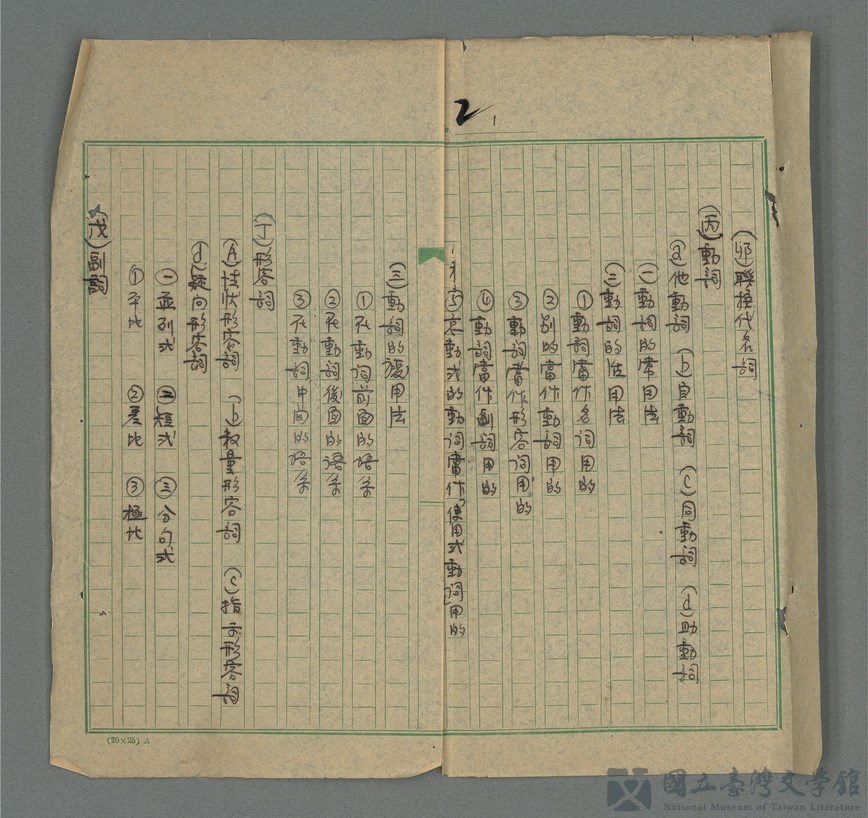 2
(卯)聯接代名詞
(丙)動詞
(a)他動詞 (b)自動詞 (c)同動詞 (d)助動詞
(一)動詞的常用法
(二)動詞的活用法
①動詞當作名詞用的
②別的當作動詞用的
③動詞當作形容詞用的
④動詞當作副詞用的
⑤ 動式的動詞當作「使用式動詞用的
(三)動詞的 用法
①在動詞前面的語系
②在動詞後面的語系
③在動詞中間的語系
(丁)形容詞
(A)性狀形容詞 (b)數量形容詞 (c)指示形容詞
(d)疑問形容詞
(一)並列式 (二)短式 (三)分句式
①平比 ②差比 ③極比
(戊)副詞
(20×25)
國立臺灣文學館
National Museum of Taiwan Literature